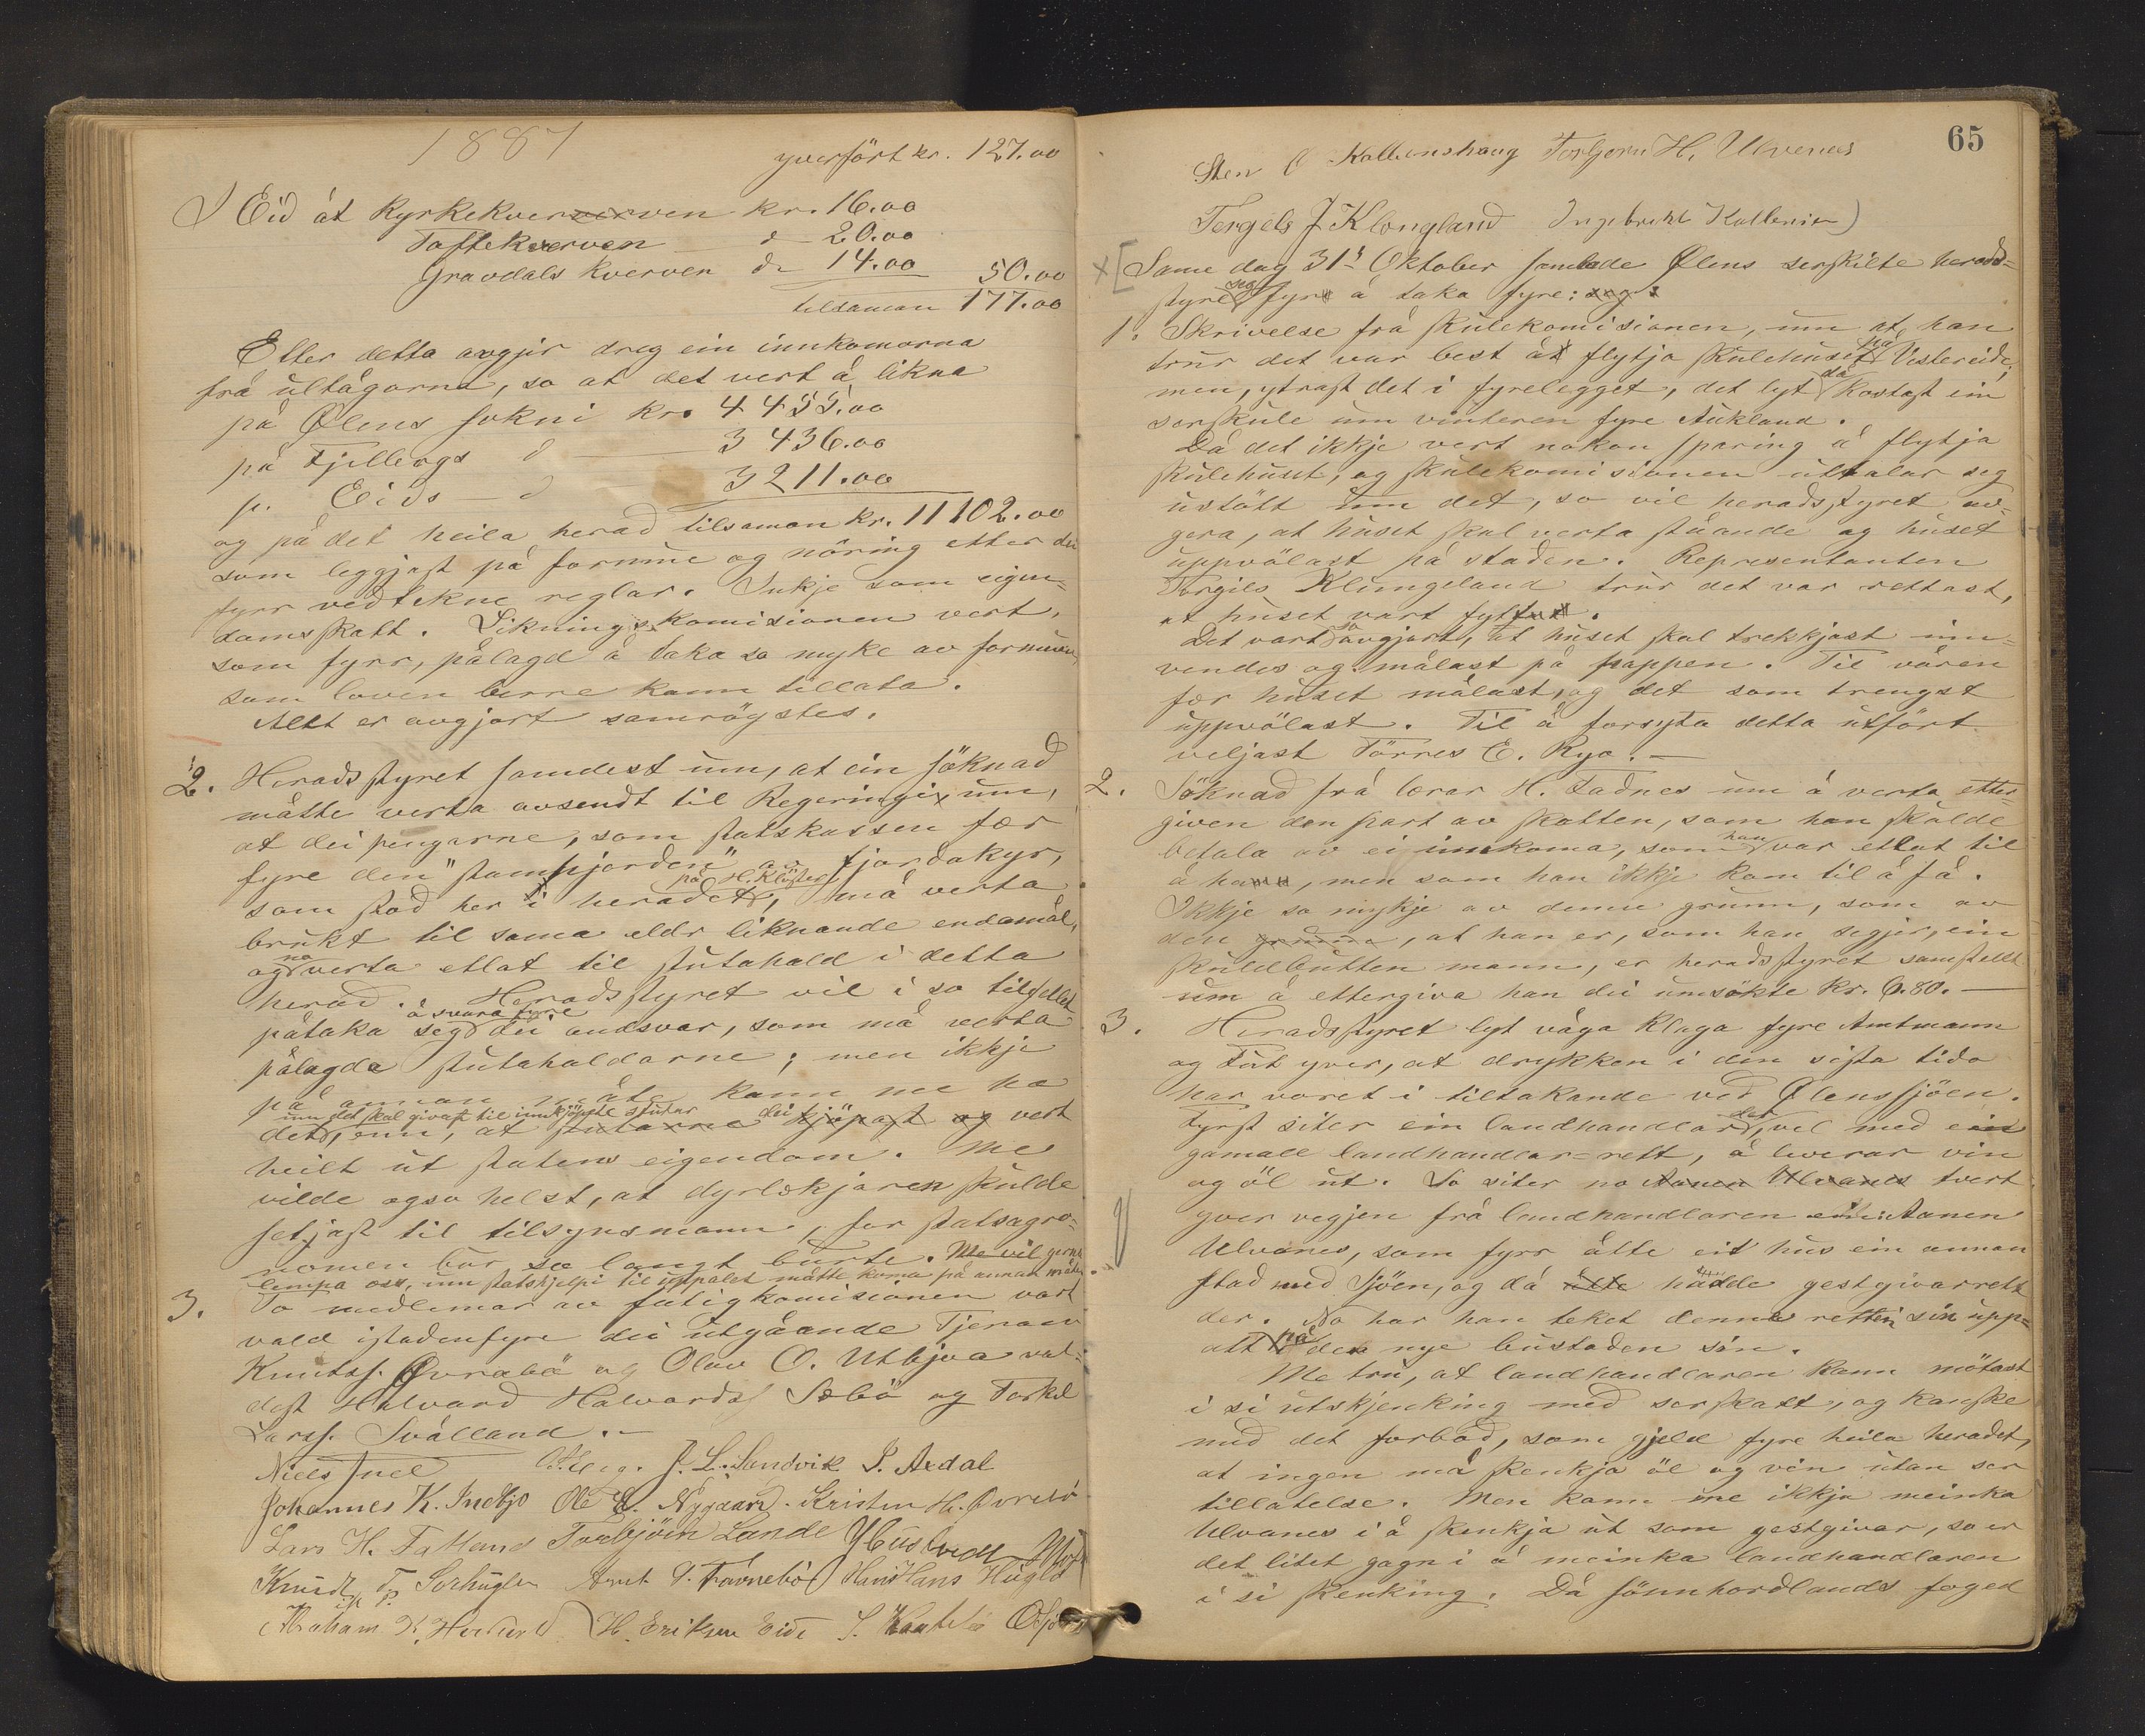 1887
yverfört kr. 127.00
I Eid åt Kyrkekververven kr. 16.00
Toftekverven d- 20.00
Gravdals kverven d- 14.00 50.00
tilsaman 177.00
Etter detta avgjer dreg ein innkomorna
frå utlågorna, so at det vert å likna
på Ølens sokni kr. 4455.00
på Fjellbergs d 3436.00
p. Eids d 3211.00
og på det heila herad tilsaman kr. 11102.00
som leggjast på formue og näring etter dei
fyrr vedtekne reglar. Inkje som eigen=
domsskatt. Liknings komisionen vert,
som fyrr, pålagd å taka so myke av formuen,
som loven berre kann tillata.
Allt er avgjort samröystes.
2. Heradsstyret samdest um, at ein söknad
måtte verta avsendt til Regeringi um,
at dei pengarne, som statskassen fær
fyre den "stamhjorden" av fjordakyr,
på H. Kloster
som stod her i heradet, må verta
brukt til sama eldr liknande endamål,
no
og verta etlat til stutahald i detta
herad. Heradsstyret vil i so tilfellet
å svara fyre
påtaka seg dei andsvar, som må verta
pålagda stutahaldarne; men ikkje
på annan måte kann me ha
um det skal givast til innkjöpte stutar dei
det, enn, at stutarne kjöpast og vert
heilt ut statens eigendom. Me
vilde ogso helst, at dyrlækjaren skulde
setjast til tilsynsmann, for statsagro=
nomen bur so langt burte. Me vil gerna
lempa oss, um statshjelpi til uppalet måtte koma på annan måte.
3. To medlemar av fatigkomisionen vart
vald istadenfyre dei utgåande Tjeran
Knutss. Øvrabö og Olav O. Utbjoa val=
dest Halvard Halvardss Sæbö og Torkel
Larss. Svålland.-
Niels Juel J. L. Sandvik S. Aadal
Johannes K. Indbjo Ole E. Nygaard. Kristen H. Øvrebö
Lars H. Tatland Torbjörn Lande
Knudt T. Sørhugln Arnt Hans Hans Hugla
Abraham H. Eriksen Eide
65
Sten O Kallevikshaug Torbjørn H. Ulvenes
Tergels J Klongland Ingebrikt
Same dag 31t Oktober samlade Ølens serskilte herads=
seg
styre fyre å taka fyre: seg:
1. Skrivelse frå skulekomisionen, um at han
på
trur det var best å flytja skulehuset Vestereide,
då
men, ytrast det i fyrelegget, det lyt kostast ein
serskule um vinteren fyre Aukland.
Då det ikkje vert nokon sparing å flytja
skulehuset, og skulekomisionen uttalar seg
ustött um det, so vil heradsstyret av=
gera, at huset skal verta ståande og huset
uppvölast på staden. Representanten
Torgils Klungeland trur det var rettast,
at huset vart fytt.
so
Det vart avgjort, at huset skal trekkjast inn=
vendes og målast på pappen. Til våren
fær huset målast, og det som trengst
uppvölast. Til å forsyta detta utfört
veljast Törres E. Rya.-
2. Söknad frå lærar H. Tadnes um å verta etter=
given den part av skatten, som han skulde
han
betala av ei innkoma, som var etlat til
å hava, men som han ikkje kom til å få.
Ikkje so mykje av denne grunn, som av
den grunna, at han er, som han segjer, ein
skuldbutten mann, er heradsstyret samstellt
um å ettergiva han dei umsökte kr. 6.80.-
3. Heradsstyret lyt våga klaga fyre Amtmann
og Fut yver, at drykken i den sista tida
har voret i tiltakande ved Ølenssjöen.
der
Fyrst siter ein landhandlar, vel med ein
gamall landhandlar=rett, å hverar vin
og öl ut. So siter no Aanen Ulvanes tvert
yver vegjen frå landhandlaren ein: Aanen
Ulvanes, som fyrr åtte eit hus ein annan
stad med Sjöen, og då åtte hadde gestgivarrett
der. No har han teket denna retten sin upp=
på
att den nye bustaden sin.
Me tru, at landhandlaren kann mötast
i si utskjenking med serskatt, og kanske
med det forbod, som gjeld fyre heila heradet,
at ingen må skenkja öl og vin utan ser
tillatelse. Men kann me ikkje meinka
Ulvanes i å skenkja ut som gestgivar, so er
det litet gagn i å meinka landhandlaren
i si skenking. Då sönnhordlands foged